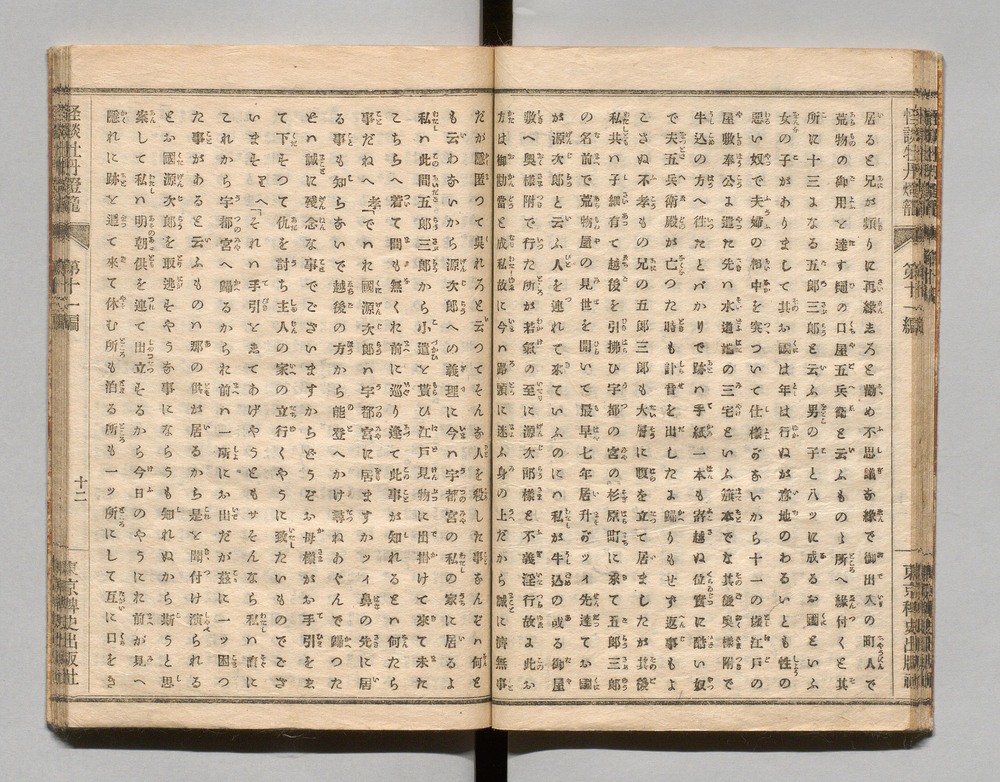 居ると兄が頻りに再縁しろと勧め不思議な縁で御出入の町人で
荒物の御用を達す樋の口屋五兵衛と云ふものゝ所へ縁付くと其
所に十三になる五郎三郎と云ふ男の子と八ッに成るお國といふ
女の子がありまして其お國は年は行ぬが意地のわるいとも性の
惡い奴で夫婦の相中を突つついて仕樣がないから十一の歳江戸の
屋敷奉公に遣た先ハ水道端の三宅といふ旗本でな其後奥樣附で
牛込の方へ徃たとバかりで跡ハ手紙一本も寄越ぬ位實に酷い奴
で夫五兵衛殿が亡つた時も訃音を出したに歸りもせず返事もよ
こさぬ不孝もの兄の五郎三郎も大層に腹を立つて居ましたが其後
私共ハ子細有て越後を引拂ひ宇都の宮の杉原町に來て五郎三郎
の名前で荒物屋の見世を開いて最早七年居升がッィ先達てお國
が源次郎と云ふ人を連れて來ていふのにハ私が牛込の或る御屋
敷へ奥樣附で行た所が若氣の至に源次郎樣と不義淫行故よ此お
方は御勘當と成り私故に今ハ路頭に迷ふ身の上だから誠に濟無事
だが隱匿つて呉れろと云つてそんな人を殺した事なんぞハ何と
も云わないから源次郎への義理に今ハ宇都宮の私の家に居るよ
私ハ此間五郎三郎から小遣を貰ひ江戸見物に出掛けて來て未た
こちらへ着て間も無くお前に巡り逢て此事が知れるとハ何たら
事だねへ 孝「でハお國源次郎ハ宇都宮に居ますかッィ鼻の先に居
る事も知らないで越後の方から能登へかけ尋ねあぐんで歸つた
とハ誠に殘念な事でございますからどうぞお母樣がお手引をし
て下すつて仇を討ち主人の家の立行くやうに致たいものでござ
います 母へ「それハ手引をしてあげやうともサそんなら私ハ直に
これから宇都宮へ歸るからお前ハ一所にお出だが茲に一ッ困つ
た事があると云ふものハ那の供が居るから是を聞付け喋べられる
とお國源次郎を取迯すやうな事にならうも知れぬから斯うと思
案して私ハ明朝供を連て出立するから今日のやうにお前が見へ
隱れに跡を追て來て休む所も泊る所も一ッ所にして互に口をき
怪談牡丹燈籠
第十一編
東京稗史出版社
怪談牡丹燈籠
第十一編
十二
東京稗史出版社